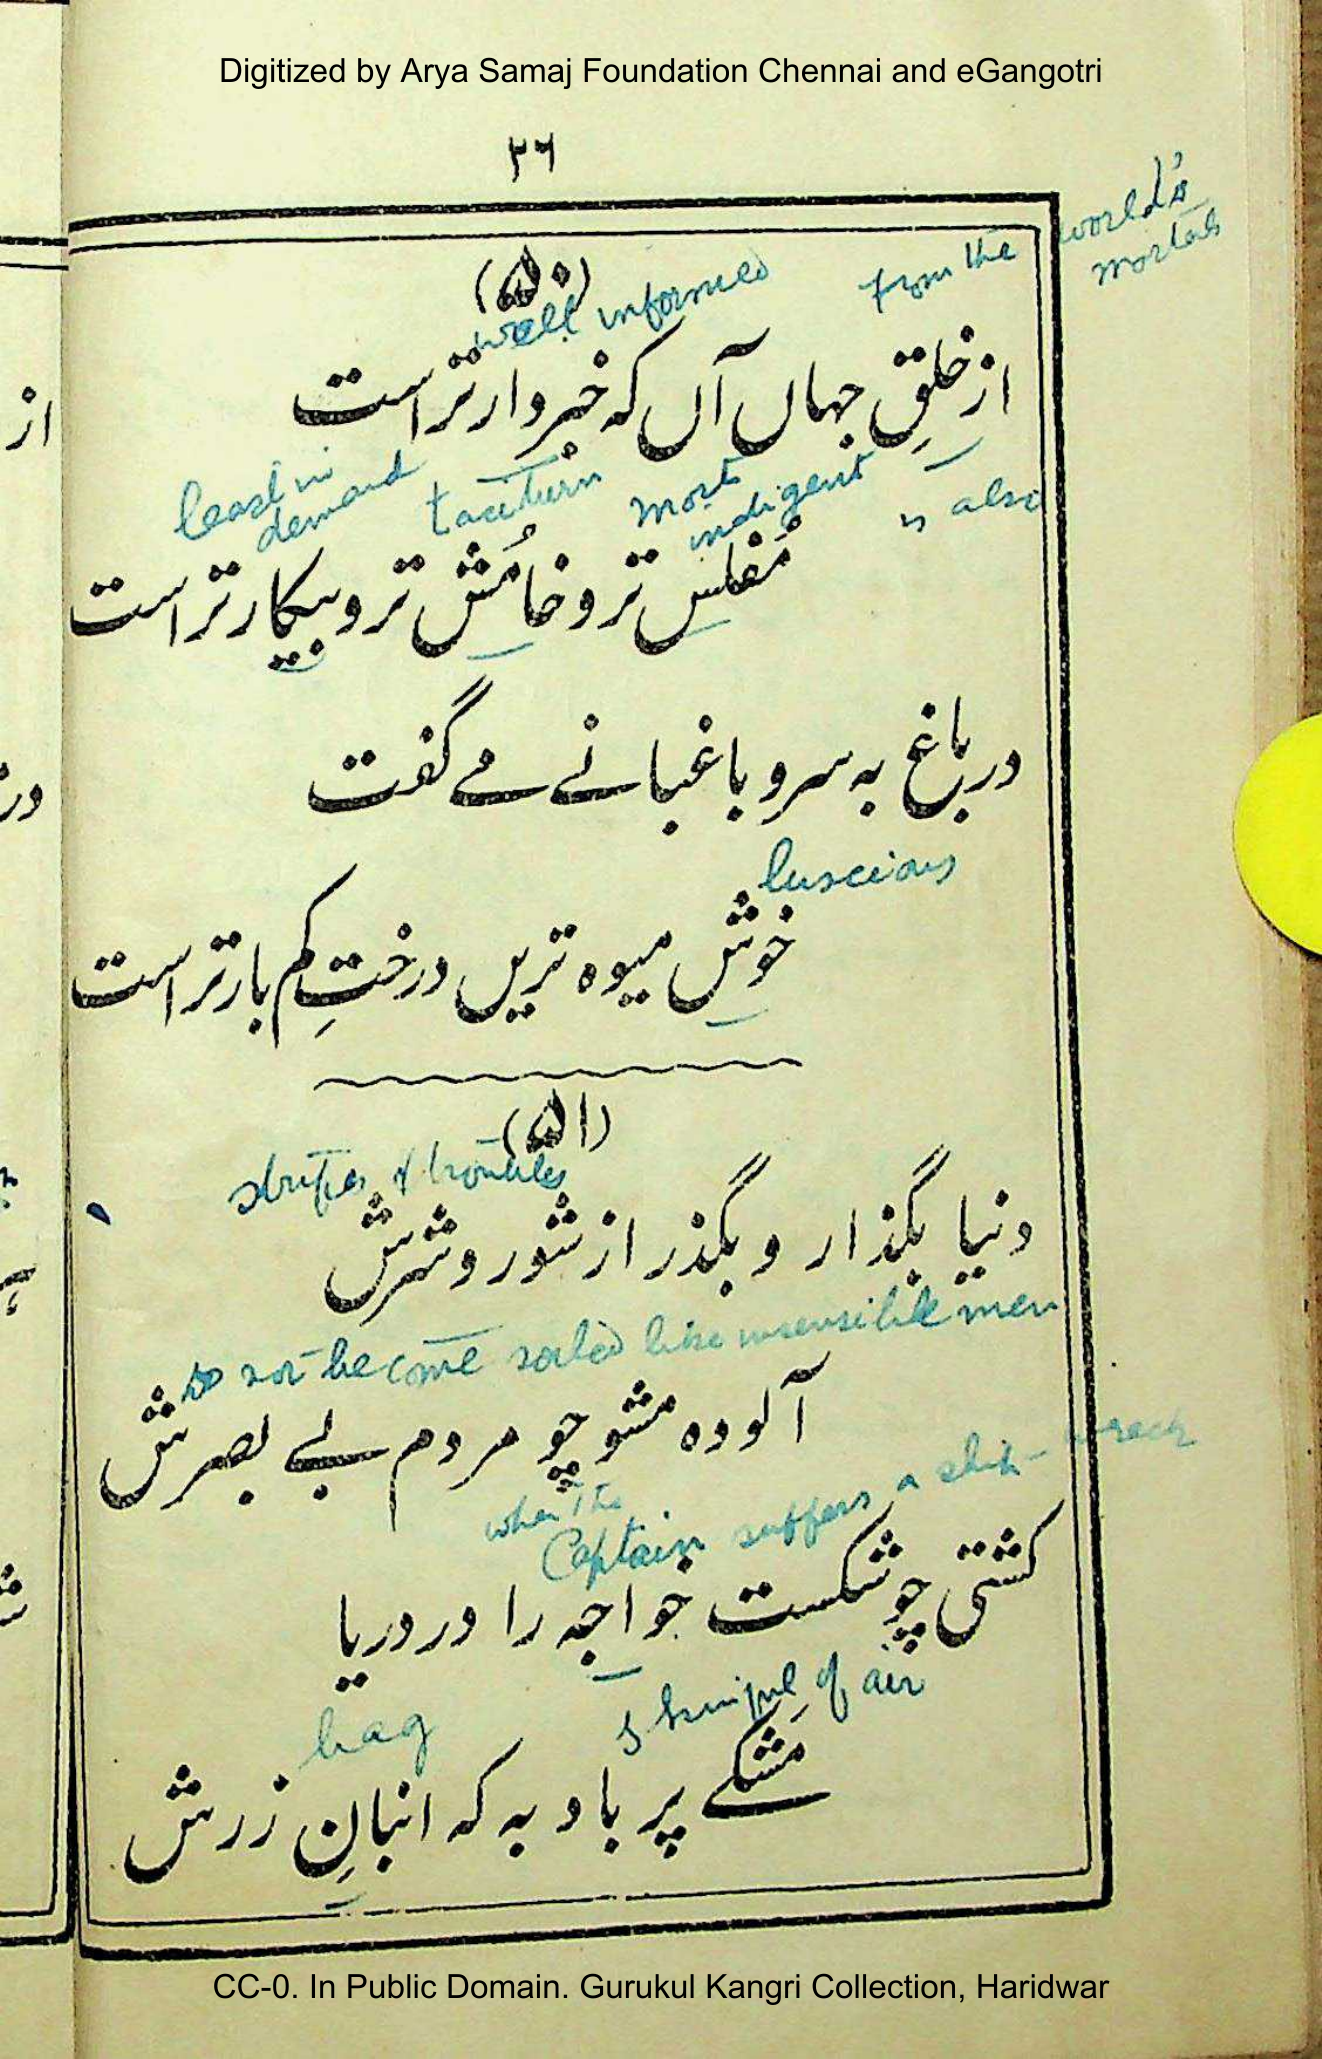 Digitized by Arya Samaj Foundation Chennai and eGangotri
۲۶
(۵۰)
well informed from the world's
mortals
از خلقِ جہاں آں کہ خبردار تر است
least in demand taciturn most indigent is also
مُفلسِ تر و خامُشِ تر و بیکار تر است
در باغ بہ سرو باغبانے مے گفت
luscious
خوشِ میوہ تریں درختِ کم بار تر است
(۵۱)
strifes & troubles
دنیا بگذار و بگذر از شور و شرش
do not become soiled like insensible men
آلودہ مشو چو مردم بے بصرش
when the Captain suffers a ship-wreck
کشتی چو شکست خواجہ را در دریا
bag skinful of air
مَشکے پر باد بہ کہ انبانِ زرش
CC-0. In Public Domain. Gurukul Kangri Collection, Haridwar